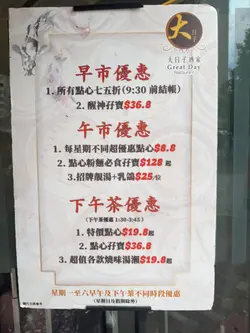 大日子專家
Great Day
早市優惠
1. 所有點心七五折(9:30 前結帳)
2. 醒神孖寶$36.8
午市優惠
1. 每星期不同超優惠點心$8.8
2. 點心粉麵必食孖寶$128起
3. 招牌靚湯+乳鴿$25/位
下午茶優惠
(下午茶優惠 1:30-3:45)
1. 特價點心$19.8起
2. 點心孖寶$36.8
3. 超值各款燒味湯瀨$19.8起
星期一至六早午及下午茶不同時段優惠
(星期日及假期除外)